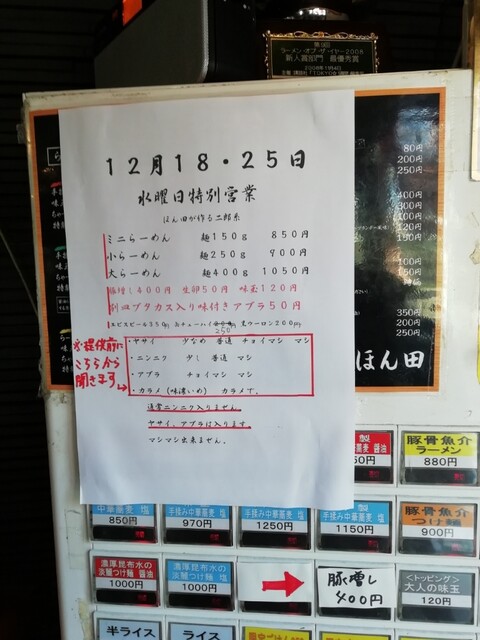 第9回
ラーメン・オブ・ザ・イヤー2008
新人賞部門 最優秀賞
12月18・25日
水曜日特別営業
ほん田が作る二郎系
ミニらーめん 麺150g 850円
小らーめん 麺250g 900円
大らーめん 麺400g 1050円
豚増し400円 生卵50円 味玉120円
別皿ブタカス入り味付きアブラ50円
250
黒ウーロン200円
※提供前に
こちらから
聞きます→
・ヤサイ 少なめ 普通 チョイマシ マシ
・ニンニク 少し 普通 マシ
・アブラ チョイマシ マシ
・カラメ(味濃いめ) カラメで。
通常ニンニク入りません。
ヤサイ、アブラは入ります。
マシマシ出来ません。
80円
200円
250円
400円
300円
100円
120円
150円
100円
150円
350円
200円
250円
ほん田
豚骨魚介
ラーメン
880円
中華蕎麦 塩
850円
970円
手揉み中華蕎麦 塩
1250円
手揉み中華蕎麦 塩
1150円
豚骨魚介
つけ麺
900円
濃厚昆布水の
淡麗つけ麺 醤油
1000円
濃厚昆布水の
淡麗つけ麺 塩
1000円
→
豚増し
400円
<トッピング>
大人の味玉
120円
半ライス
ライス